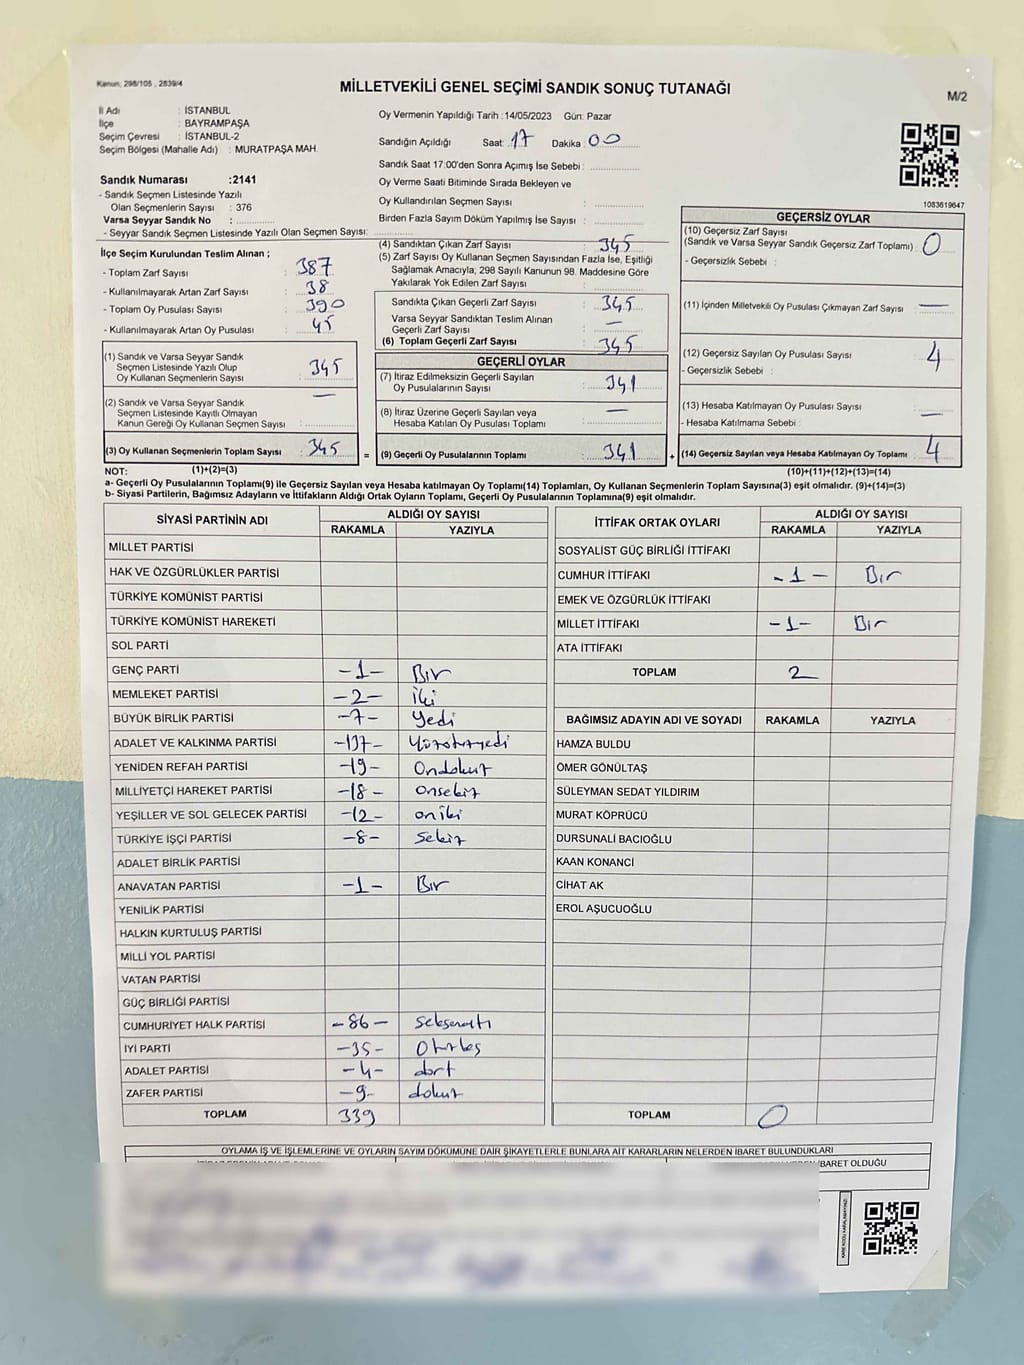 Kanun, 298/105 , 2839/4
MİLLETVEKİLİ GENEL SEÇİMİ SANDIK SONUÇ TUTANAĞI
M/2
İl Adı : İSTANBUL
İlçe : BAYRAMPAŞA
Seçim Çevresi : İSTANBUL-2
Seçim Bölgesi (Mahalle Adı) : MURATPAŞA MAH.
Oy Vermenin Yapıldığı Tarih : 14/05/2023 Gün: Pazar
Sandığın Açıldığı Saat: 17 Dakika: 00
Sandık Saat 17:00'den Sonra Açımış İse Sebebi :
Oy Verme Saati Bitiminde Sırada Bekleyen ve
Oy Kullandırılan Seçmen Sayısı :
Birden Fazla Sayım Döküm Yapılmış İse Sayısı :
Sandık Numarası :2141
- Sandık Seçmen Listesinde Yazılı
Olan Seçmenlerin Sayısı : 376
Varsa Seyyar Sandık No :
- Seyyar Sandık Seçmen Listesinde Yazılı Olan Seçmen Sayısı:
1083619647
İlçe Seçim Kurulundan Teslim Alınan ;
- Toplam Zarf Sayısı : 387
- Kullanılmayarak Artan Zarf Sayısı : 38
- Toplam Oy Pusulası Sayısı : 390
- Kullanılmayarak Artan Oy Pusulası : 45
(1) Sandık ve Varsa Seyyar Sandık
Seçmen Listesinde Yazılı Olup
Oy Kullanan Seçmenlerin Sayısı : 345
(2) Sandık ve Varsa Seyyar Sandık
Seçmen Listesinde Kayıtlı Olmayan
Kanun Gereği Oy Kullanan Seçmen Sayısı : —
(3) Oy Kullanan Seçmenlerin Toplam Sayısı : 345 =
(4) Sandıktan Çıkan Zarf Sayısı : 345
(5) Zarf Sayısı Oy Kullanan Seçmen Sayısından Fazla İse, Eşitliği
Sağlamak Amacıyla, 298 Sayılı Kanunun 98. Maddesine Göre
Yakılarak Yok Edilen Zarf Sayısı :
Sandıkta Çıkan Geçerli Zarf Sayısı : 345
Varsa Seyyar Sandıktan Teslim Alınan
Geçerli Zarf Sayısı : —
(6) Toplam Geçerli Zarf Sayısı : 345
GEÇERLİ OYLAR
(7) İtiraz Edilmeksizin Geçerli Sayılan
Oy Pusulalarının Sayısı : 341
(8) İtiraz Üzerine Geçerli Sayılan veya
Hesaba Katılan Oy Pusulası Toplamı : —
(9) Geçerli Oy Pusulalarının Toplamı : 341 +
GEÇERSİZ OYLAR
(10) Geçersiz Zarf Sayısı
(Sandık ve Varsa Seyyar Sandık Geçersiz Zarf Toplamı) : 0
- Geçersizlik Sebebi :
(11) İçinden Milletvekili Oy Pusulası Çıkmayan Zarf Sayısı : —
(12) Geçersiz Sayılan Oy Pusulası Sayısı : 4
- Geçersizlik Sebebi :
(13) Hesaba Katılmayan Oy Pusulası Sayısı : —
- Hesaba Katılmama Sebebi :
(14) Geçersiz Sayılan veya Hesaba Katılmayan Oy Toplamı : 4
NOT: (1)+(2)=(3) (10)+(11)+(12)+(13)=(14)
a- Geçerli Oy Pusulalarının Toplamı(9) ile Geçersiz Sayılan veya Hesaba katılmayan Oy Toplamı(14) Toplamları, Oy Kullanan Seçmenlerin Toplam Sayısına(3) eşit olmalıdır. (9)+(14)=(3)
b- Siyasi Partilerin, Bağımsız Adayların ve İttifakların Aldığı Ortak Oyların Toplamı, Geçerli Oy Pusulalarının Toplamına(9) eşit olmalıdır.
SİYASİ PARTİNİN ADI ALDIĞI OY SAYISI
RAKAMLA YAZIYLA
MİLLET PARTİSİ
HAK VE ÖZGÜRLÜKLER PARTİSİ
TÜRKİYE KOMÜNİST PARTİSİ
TÜRKİYE KOMÜNİST HAREKETİ
SOL PARTİ
GENÇ PARTİ -1- Bir
MEMLEKET PARTİSİ -2- iki
BÜYÜK BİRLİK PARTİSİ -7- yedi
ADALET VE KALKINMA PARTİSİ -137- Yüzotuzyedi
YENİDEN REFAH PARTİSİ -19- Ondokuz
MİLLİYETÇİ HAREKET PARTİSİ -18- Onsekiz
YEŞİLLER VE SOL GELECEK PARTİSİ -12- oniki
TÜRKİYE İŞÇİ PARTİSİ -8- Sekiz
ADALET BİRLİK PARTİSİ
ANAVATAN PARTİSİ -1- Bir
YENİLİK PARTİSİ
HALKIN KURTULUŞ PARTİSİ
MİLLİ YOL PARTİSİ
VATAN PARTİSİ
GÜÇ BİRLİĞİ PARTİSİ
CUMHURİYET HALK PARTİSİ -86- Seksenaltı
İYİ PARTİ -35- Otuzbeş
ADALET PARTİSİ -4- dört
ZAFER PARTİSİ -9- dokuz
TOPLAM 339
İTTİFAK ORTAK OYLARI ALDIĞI OY SAYISI
RAKAMLA YAZIYLA
SOSYALİST GÜÇ BİRLİĞİ İTTİFAKI
CUMHUR İTTİFAKI -1- Bir
EMEK VE ÖZGÜRLÜK İTTİFAKI
MİLLET İTTİFAKI -1- Bir
ATA İTTİFAKI
TOPLAM 2
BAĞIMSIZ ADAYIN ADI VE SOYADI RAKAMLA YAZIYLA
HAMZA BULDU
ÖMER GÖNÜLTAŞ
SÜLEYMAN SEDAT YILDIRIM
MURAT KÖPRÜCÜ
DURSUNALİ BACIOĞLU
KAAN KONANCİ
CİHAT AK
EROL AŞUCUOĞLU
TOPLAM 0
OYLAMA İŞ VE İŞLEMLERİNE VE OYLARIN SAYIM DÖKÜMÜNE DAİR ŞİKAYETLERLE BUNLARA AİT KARARLARIN NELERDEN İBARET BULUNDUKLARI
İBARET OLDUĞU